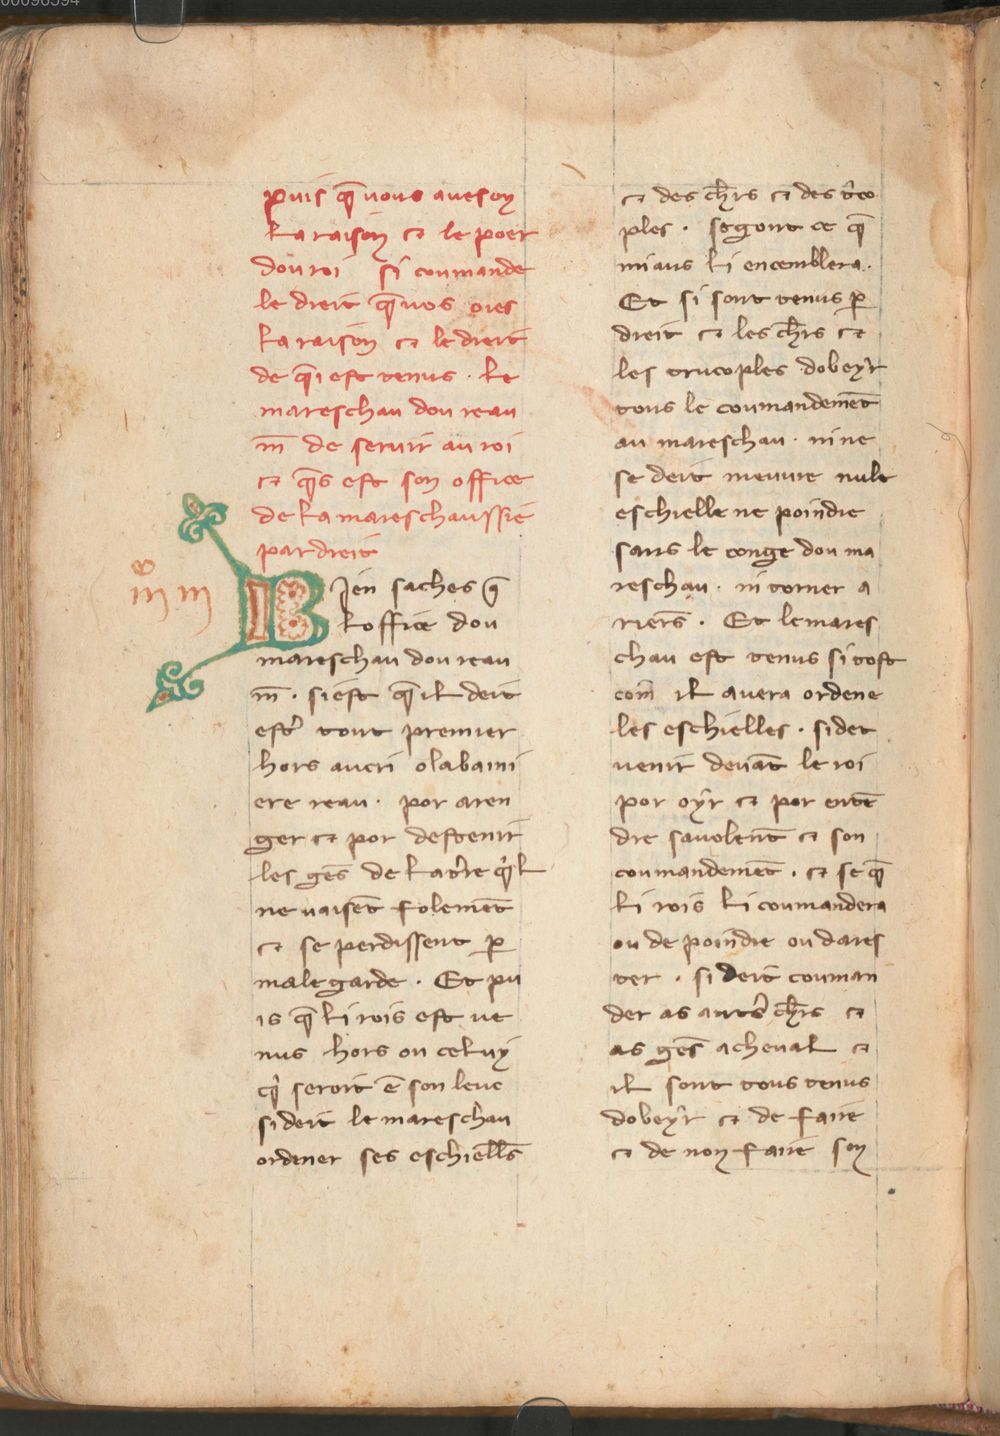 puis q̄ vous aues oy
la raison et le poer
dou roi si coumande
le dreit q̄ vos oies
la raison et le dreit
de q̄i est tenus · le
mareschau dou reau
m̄ de seruir au roi
et q̄s est son office
de la mareschaussie
par dreit
BIen saches q̄
loffice dou
mareschau dou reau
m̄ · si est q̄ il deit
estr̾ tout premier
hors aueri o la bani
ere reau · por aren
ger et por destenir
les ges̄ de la tr̾re q̾l
ne uaisēt folemēt
et se perdissent p̄
male garde · Et pu
is q̄ li rois est ve
nus hors ou celuy
q̾ seroit ē son leue
si deit le mareschau
ordener ses eschiell̄s
et des ch̄rs et des tr̾co
ples · segont ce q̄
miaus li encemblera ·
Et si sont tenus p̄
dreit et les ch̄rs et
les trucoples dobeyr
tous le coumandemēt
au mareschau · ni ne
se deit meuure nule
eschielle ne poindre
sans le conge dou ma
reschau · ni torner a
riers̄ · Et le mares
chau est tenus si tost
com̄ il auera ordene
les eschielles · si det
venir deuāt le roi
por oyr et por entē
dre sa volent̄ et son
coumandemēt · et se q̄
li rois li coumandera
ou de poindre ou dares
ter · si deit couman
der as autr̾s ch̄rs et
as ges̄ a cheual et
il sont tous tenus
dobeyr et de faire
et de non faire son